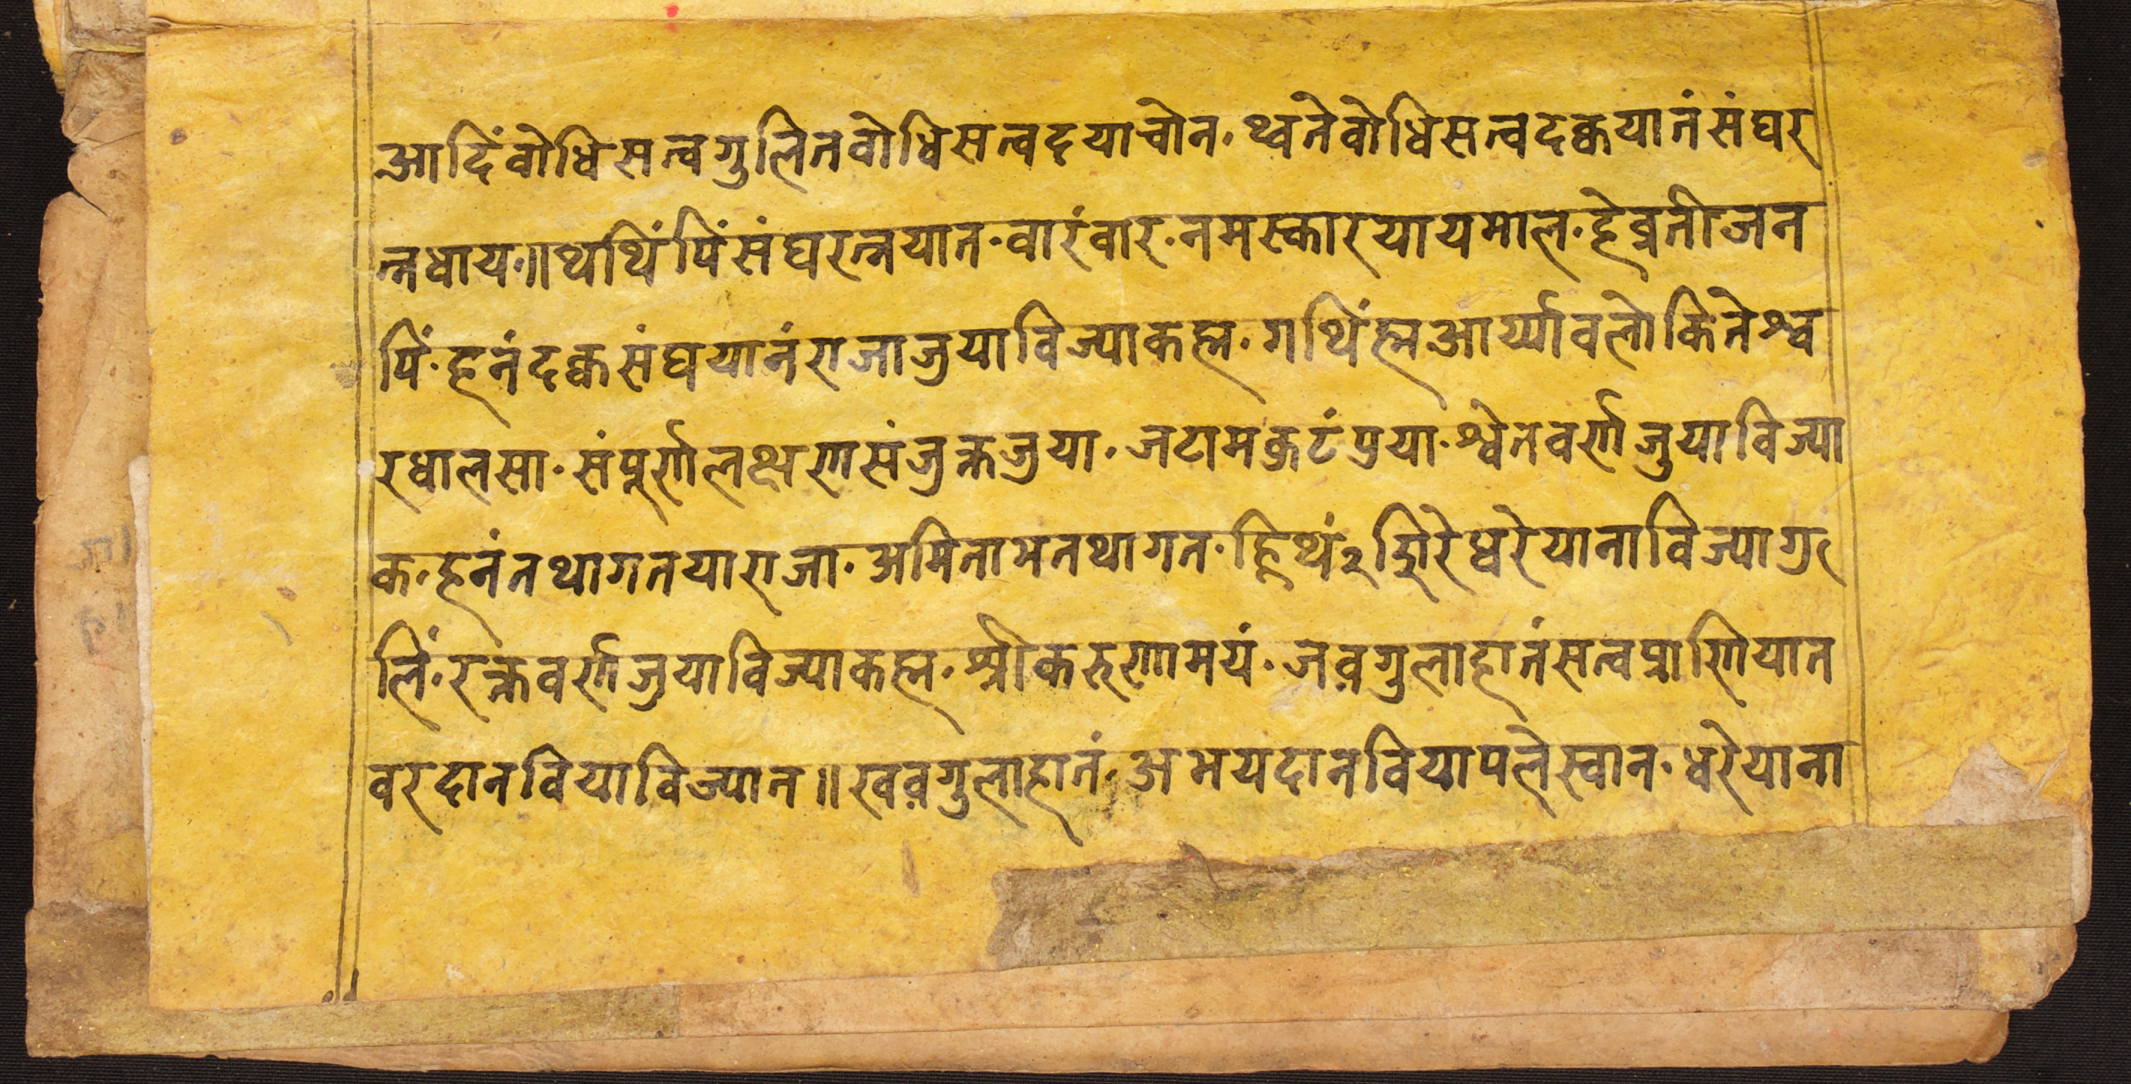 आदिं वोधिसत्वगुलितवोधिसत्वदयाचोन॰ थ्वतेवोधिसत्वदक्वयानं संघर
त्नधाय॰॥ थथिंपिं संघरत्नयात॰ वारंवार॰ नमस्कारयायमाल॰ हे व्रतीजन
पिं॰ हनं दक्वसंघयानं राजाजुयाविज्याकह्म॰ गथिंह्म आर्य्यावलोकितेश्व
रधालसा॰ संपूर्णलक्षणसंजुक्तजुया॰ जटामकुटं पुया॰ श्वेतवर्णजुयाविज्या
क॰ हनं तथागतयाराजा॰ अमिताभतथागत॰ छिथं२ शिरे धरेयानाविज्यागु
लिं॰ रक्तवर्णजुयाविज्याकह्म॰ श्रीकरुणामयं॰ जवगुलाहातं सत्वप्राणियात
वरदानवियाविज्यात॥ खवगुलाहातं॰ अभयदानविया पलेस्वान॰ धरेयाना